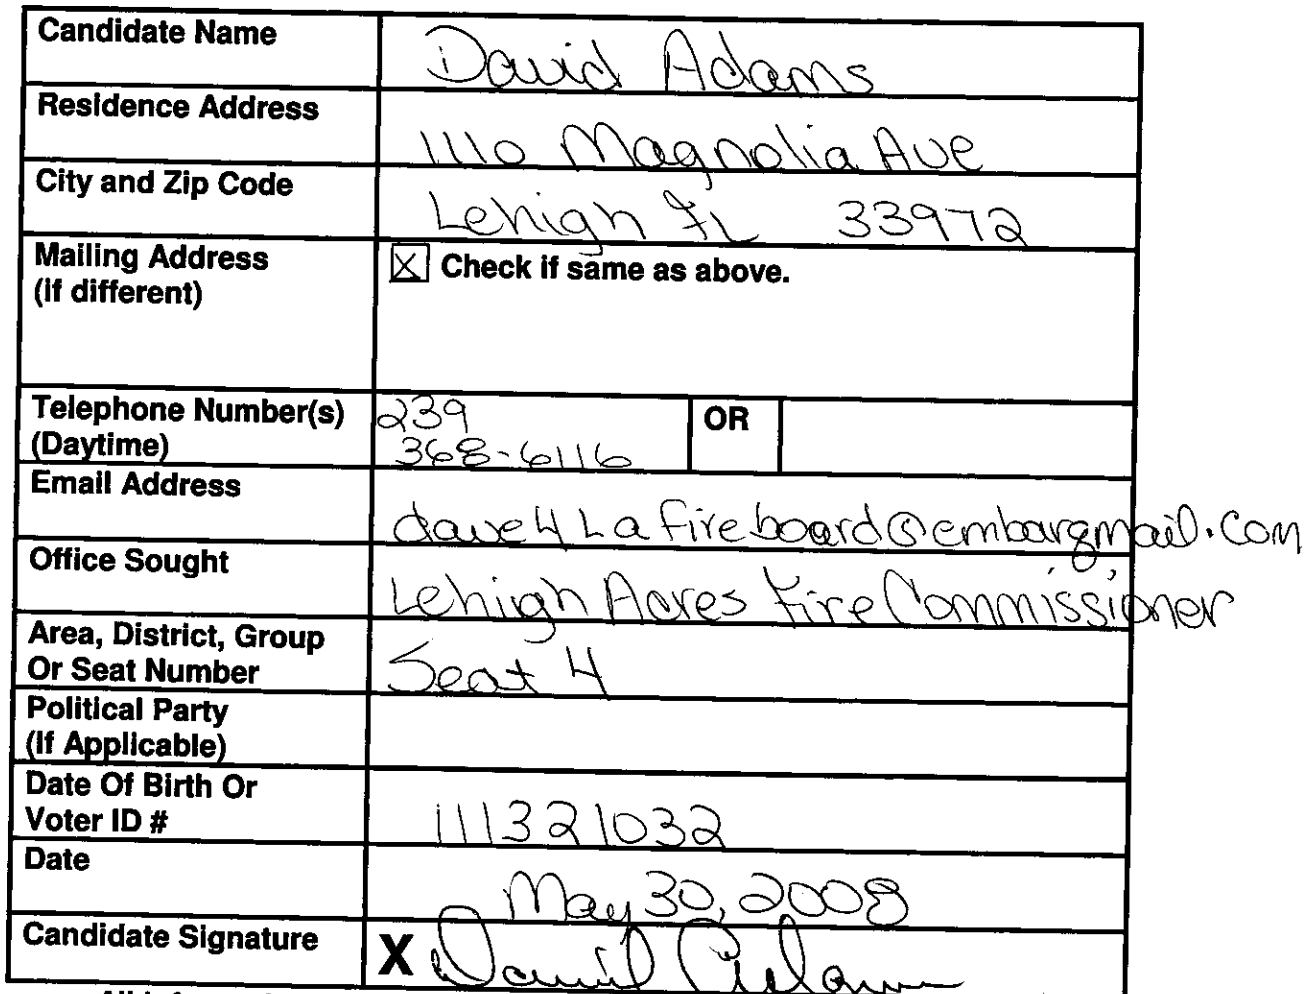 Candidate Name David Adams
Residence Address 1110 Magnolia Ave
City and Zip Code Lehigh FL 33972
Mailing Address
(if different)
X Check if same as above.
Telephone Number(s)
(Daytime)
239
368-6116
OR
Email Address dave4Lafireboard@embarqmail.com
Office Sought Lehigh Acres Fire Commissioner
Area, District, Group
Or Seat Number
Seat 4
Political Party
(If Applicable)
Date Of Birth Or
Voter ID #
111321032
Date May 30, 2008
Candidate Signature X David Adams